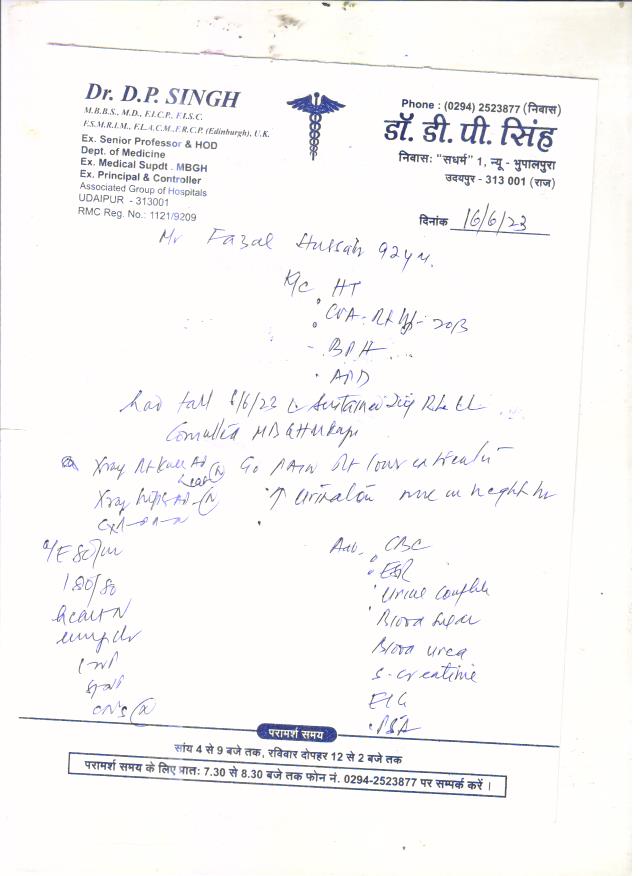 Dr. D.P. SINGH
M.B.B.S., M.D., F.I.C.P., F.I.S.C.
F.S.M.R.I.M., F.L.A.C.M., F.R.C.P. (Edinburgh), U.K.
Ex. Senior Professor & HOD
Dept. of Medicine
Ex. Medical Supdt . MBGH
Ex. Principal & Controller
Associated Group of Hospitals
UDAIPUR - 313001
RMC Reg. No.: 1121/9209
Phone : (0294) 2523877 (निवास)
डॉ. डी. पी. सिंह
निवासः "सधर्म" 1, न्यू - भुपालपुरा
उदयपुर - 313 001 (राज)
दिनांक 16/6/23
Mr Fazal Hussain 92 yr.
K/c HT
CVA - Rt 2013
BPH
APD
had fall 8/6/23 sustained inj Rt LL
Consulted MBGH
Xray Rt Knee AP (N)
Xray hips AP (N)
C/o pain Rt lower extremity
↑ urination more in night hr
O/E 80/m
180/80
heart N
CNS (N)
Adv. CBC
ESR
Urine complete
Blood sugar
Blood urea
S. creatinine
ECG
PSA
परामर्श समय
सांय 4 से 9 बजे तक, रविवार दोपहर 12 से 2 बजे तक
परामर्श समय के लिए प्रातः 7.30 से 8.30 बजे तक फोन नं. 0294-2523877 पर सम्पर्क करें ।